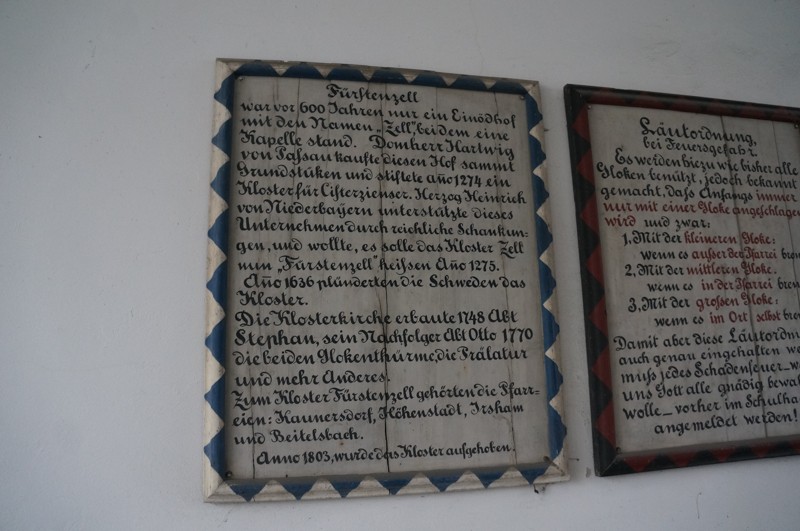 Fürstenzell
war vor 600 Jahren nur ein Einödhof
mit den Namen „Zell“, bei dem eine
Kapelle stand. Domherr Hartwig
von Passau kaufte diesen Hof sammt
Grundstüken und stiftete año 1274 ein
Kloster für Cisterzienser. Herzog Heinrich
von Niederbaÿern unterstützte dieses
Unternehmen durch reichliche Schankun-
gen, und wollte, es solle das Kloster Zell
nun „Fürstenzell“ heissen Año 1275.
Año 1636 plünderten die Schweden das
Kloster.
Die Klosterkirche erbaute 1748 Abt
Stephan, sein Nachfolger Abt Otto 1770
die beiden Glokenthürme, die Prälatur
und mehr Anderes.
Zum Kloster Fürstenzell gehörten die Pfarr-
eien: Kaunersdorf, Höhenstadt, Irsham
und Beitelsbach.
Anno 1803, wurde das Kloster aufgehoben.
Läutordnung,
bei Feuersgefahr.
Es werden hiezu wie bisher alle
Gloken benützt, jedoch bekannt
gemacht, daſs Anfangs immer
nur mit einer Gloke angeschlagen
wird und zwar:
1, Mit der kleineren Gloke:
wenn es außer der Pfarrei
2, Mit der mittleren Gloke.
wenn es in der Pfarrei
3, Mit der großen Gloke:
wenn es im Ort selbst
Damit aber diese
auch genau eingehalten
muſs jedes Schadenfeuer
uns Gott alle gnädig
wolle _ vorher im
angemeldet werden!